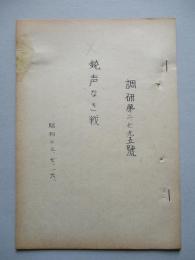 調研第二七九五號
銃声なき戦
昭和十三、七、一六、